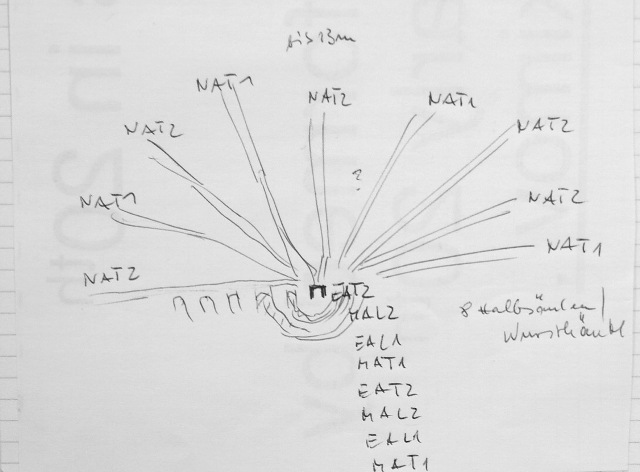 bis 13m
NAT1
NAT2
NAT1
NAT2
NAT2
NAT1
NAT2
NAT2
NAT1
?
EAT2
MAL2
EAL1
MAT1
EAT2
MAL2
EAL1
MAT1
8 Halbsäulen/